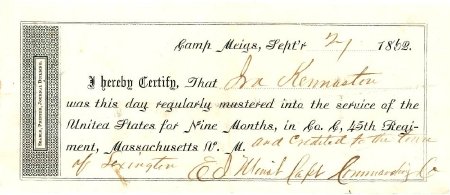 Camp Meigs, Sept'r 21 1862.
I hereby Certify, That Ira Kennaston
was this day regularly mustered into the service of the
United States for Nine Months, in Co. C, 45th Regi-
ment, Massachusetts V. M. and Credited to the town
of Lexington E J Minot Capt Commanding Co